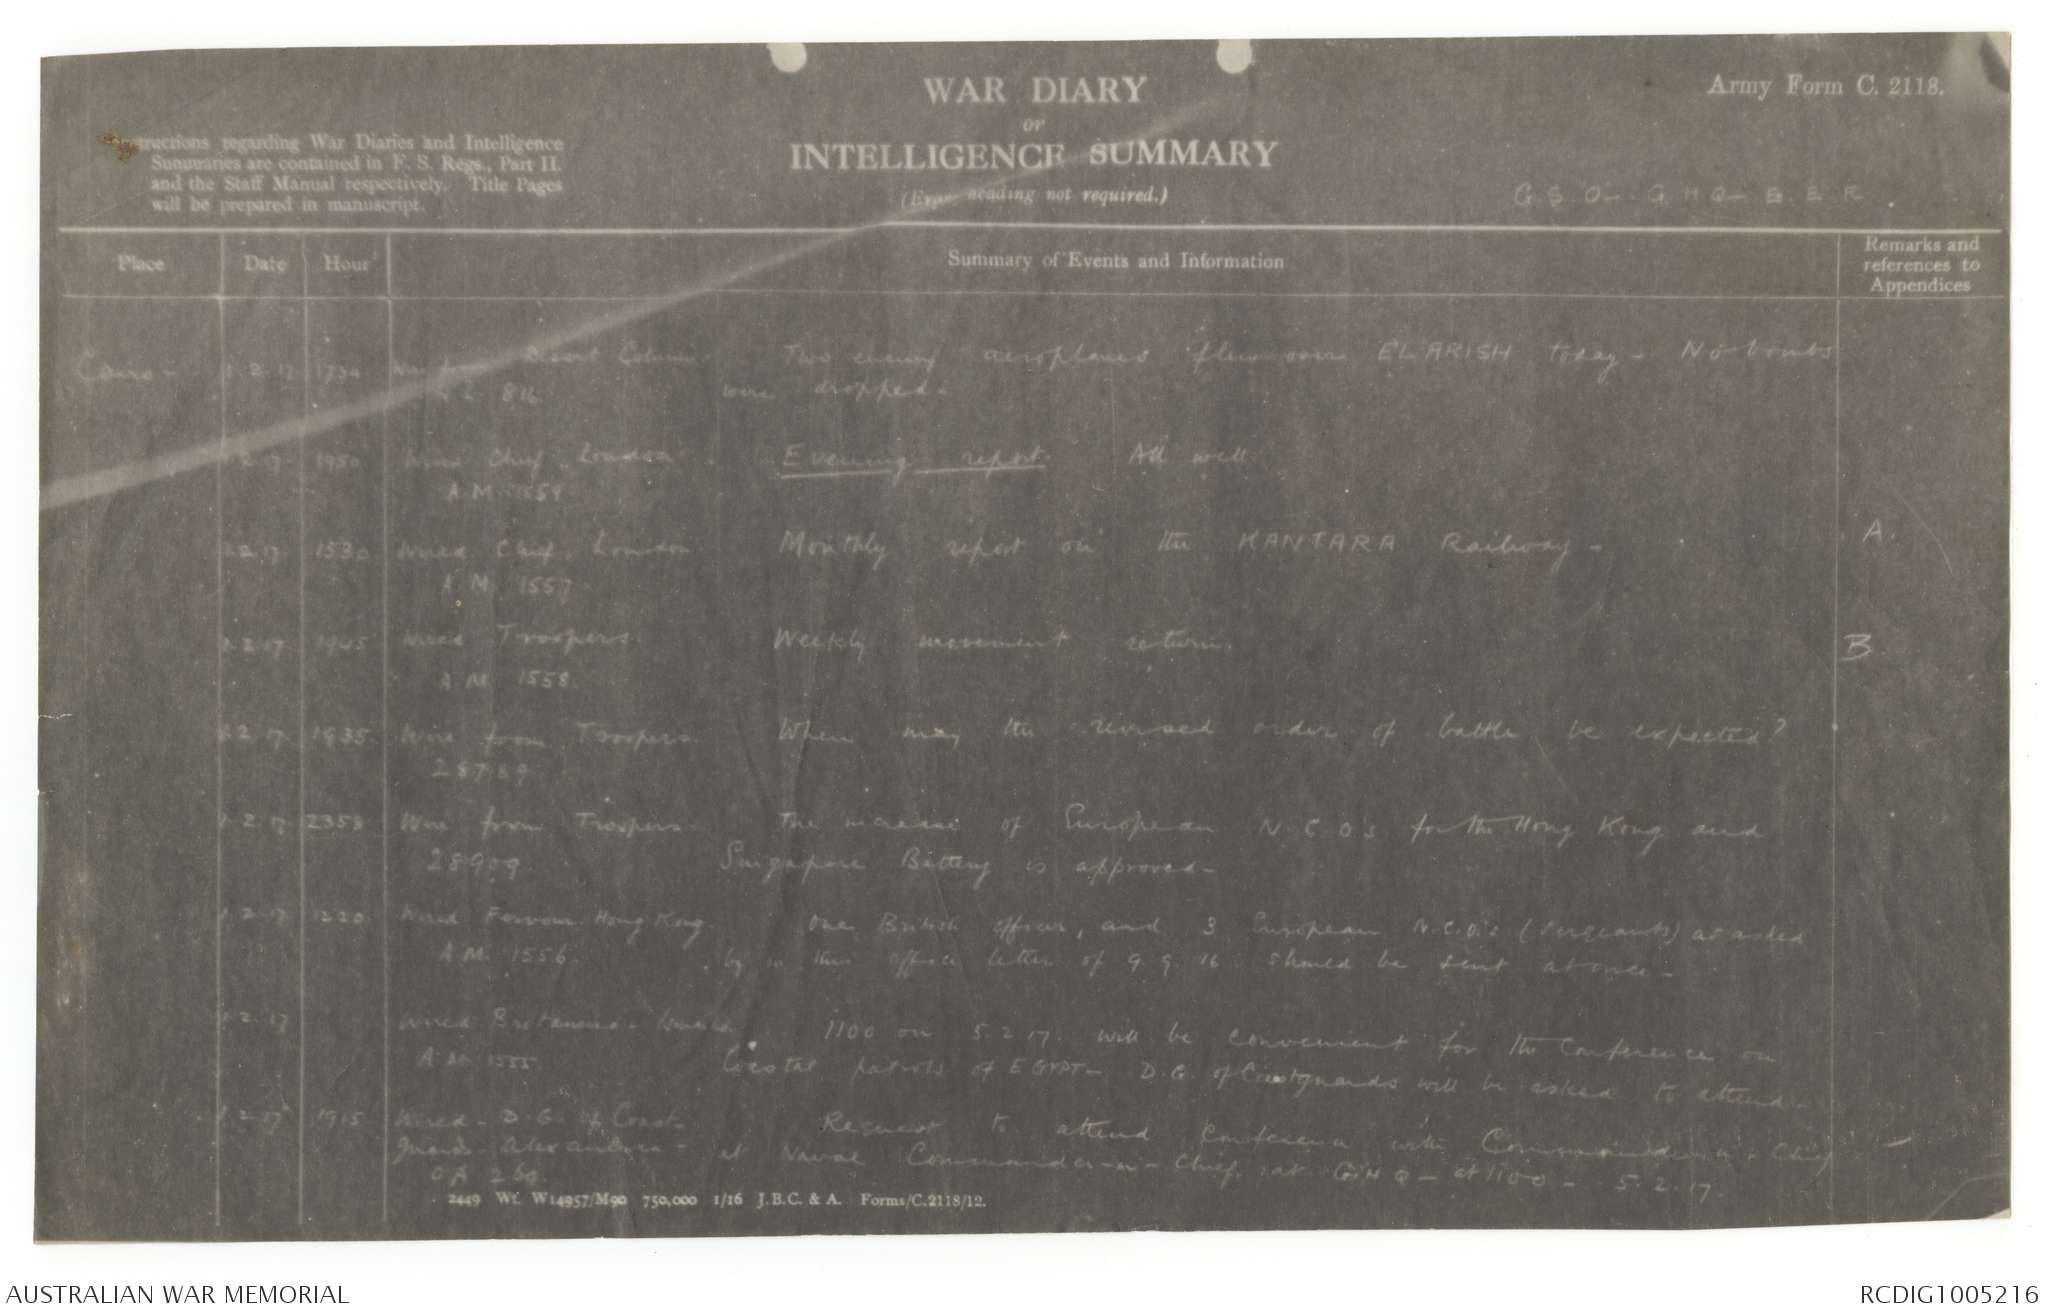 WAR DIARY
or
INTELLIGENCE SUMMARY
(Erase heading not required.)
Army Form C. 2118.
Instructions regarding War Diaries and Intelligence
Summaries are contained in F. S. Regs., Part II.
and the Staff Manual respectively. Title Pages
will be prepared in manuscript.
G.S.O- G.H.Q- E.E.F.
Place Date Hour Summary of Events and Information Remarks and
references to
Appendices
Cairo- 1.2.17 1734 Desert Column. Two enemy aeroplanes flew over EL ARISH today - No bombs
were dropped -
1.2.17 1950 Wired Chief London Evening report. All well.
A.M. 1559
1.2.17 1530 Wired Chief London Monthly report on the KANTARA Railway - A.
A.M. 1557
1.2.17 1945 Wired Troopers. Weekly movement return. B
A.M. 1558.
1.2.17 1935 Wire from Troopers When may the revised order of battle be expected?
28789
1.2.17 2358 Wire from Troopers The increase of European N.C.Os for the Hong Kong and
28909 Singapore Battery is approved -
1.2.17 1220 Wired Hong Kong. One British officer, and 3 European N.C.O's (Sergeants) as asked
A.M. 1556. by in this office letter of 9.9.16. should be sent at once -
1.2.17 Wired 1100 on 5.2.17. will be convenient for the Conference on
A.M. 1555 Coastal patrols of EGYPT - D.G. of Coastguards will be asked to attend -
1.2.17 1915 Wired - D.G. of Coast- Request to attend conference with Commander in Chief
Guards - Alexandria - at Naval Commander-in-Chief. at G.H.Q - at 1100 - 5.2.17.
OA
2449 Wt. W14957/M90 750,000 1/16 J.B.C. & A. Forms/C.2118/12.
AUSTRALIAN WAR MEMORIAL
RCDIG1005216